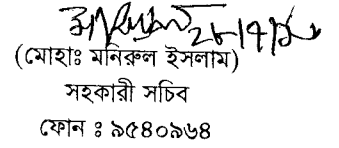 (মোহাঃ মনিরুল ইসলাম)
সহকারী সচিব
ফোন ঃ ৯৫৪০৯৬৪